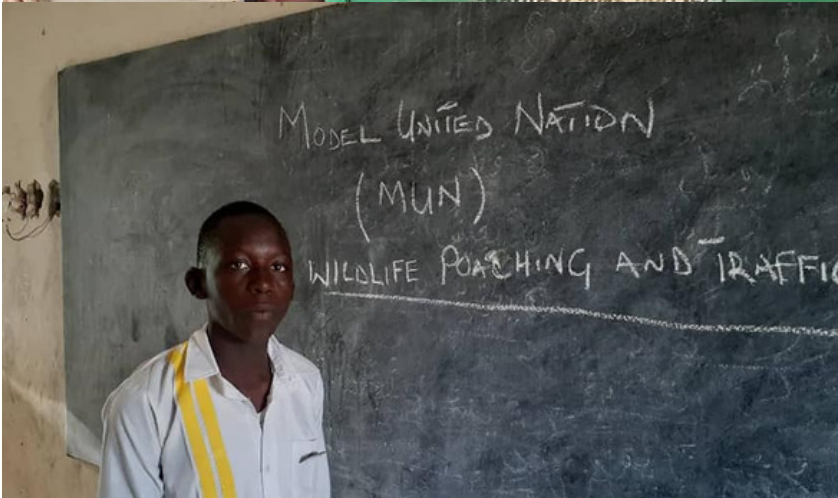 MODEL UNITED NATION
(MUN)
WILDLIFE POACHING AND TRAFFIC